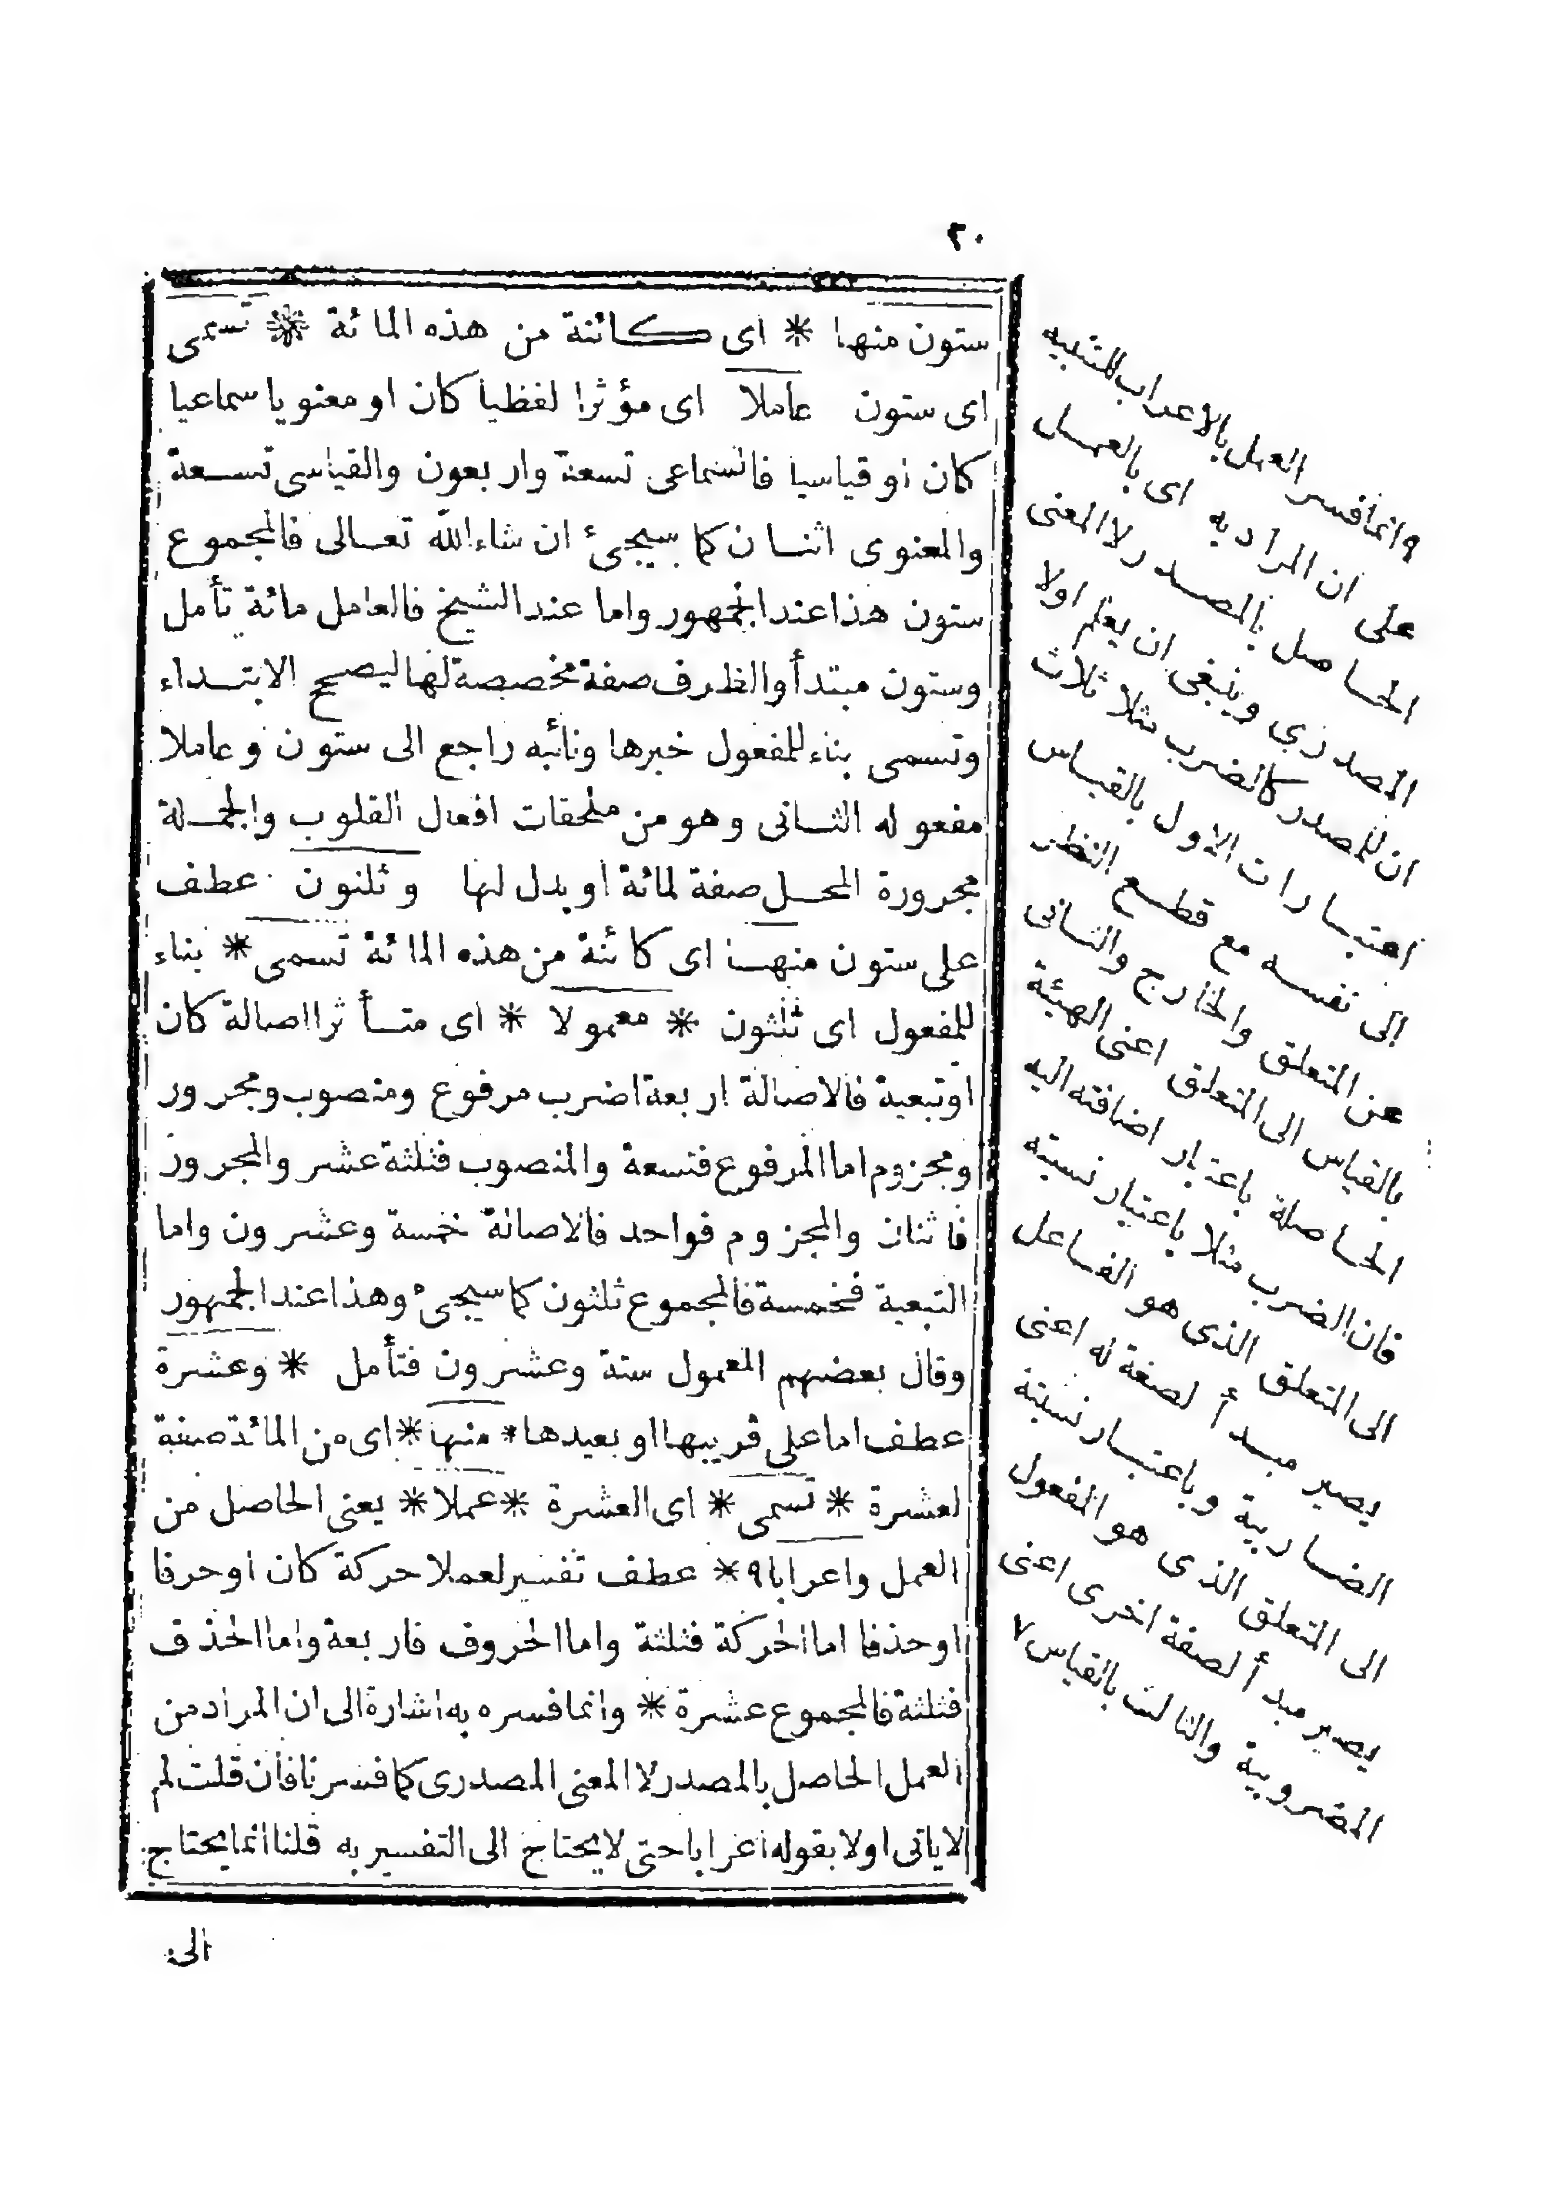 ٢٠
ستون منها * اى كائنة من هذه المائة * تسمى
اى ستون عاملا اى مؤثرا لفظيا كان او معنويا سماعيا
كان او قياسيا فالسماعى تسعة واربعون والقياسى تسعة
والمعنوى اثنان كما سيجئ ان شاء الله تعالى فالمجموع
ستون هذا عند الجمهور واما عند الشيخ فالعامل مائة تأمل
وستون مبتدأ والظرف صفة مخصصة لها ليصح الابتداء
وتسمى بناء للمفعول خبرها ونائبه راجع الى ستون وعاملا
مفعوله الثانى وهو من ملحقات افعال القلوب والجملة
مجرورة المحل صفة لمائة او بدل لها وثلثون عطف
على ستون منها اى كائنة من هذه المائة تسمى * بناء
للمفعول اى ثلثون * معمولا * اى متأثرا اصالة كان
او تبعية فالاصالة اربعة اضرب مرفوع ومنصوب ومجرور
ومجزوم اما المرفوع فتسعة والمنصوب فثلثة عشر والمجرور
فاثنان والمجزوم فواحد فالاصالة خمسة وعشرون واما
التبعية فخمسة فالمجموع ثلثون كما سيجئ وهذا عند الجمهور
وقال بعضهم المعمول ستة وعشرون فتأمل * وعشرة
عطف اما على قريبها او بعيدها * منها * اى من المائة صفة
لعشرة * تسمى * اى العشرة * عملا * يعنى الحاصل من
العمل واعرابا ٩ * عطف تفسير لعملا حركة كان او حرفا
او حذفا اما الحركة فثلثة واما الحروف فاربعة واما الحذف
فثلثة فالمجموع عشرة * وانما فسره به اشارة الى ان المراد من
العمل الحاصل بالمصدر لا المعنى المصدرى كما فسرنا فان قلت لم
لا يأتى اولا بقوله اعرابا حتى لا يحتاج الى التفسير به قلنا انما يحتاج
الى
٩ وانما فسر العمل بالاعراب للتنبيه
على ان المراد به اى بالعمل
الحاصل بالمصدر لا المعنى
المصدرى وينبغى ان يعلم اولا
ان للمصدر كالضرب مثلا ثلاث
اعتبارات الاول بالقياس
الى نفسه مع قطع النظر
عن المتعلق والخارج والثانى
بالقياس الى المتعلق اعنى الهيئة
الحاصلة باعتبار اضافته اليه
فان الضرب مثلا باعتبار نسبته
الى المتعلق الذى هو الفاعل
يصير مبدأ لصفة له اعنى
الضاربية وباعتبار نسبته
الى المتعلق الذى هو المفعول
يصير مبدأ لصفة اخرى اعنى
المضروبية والثالث بالقياس ٧